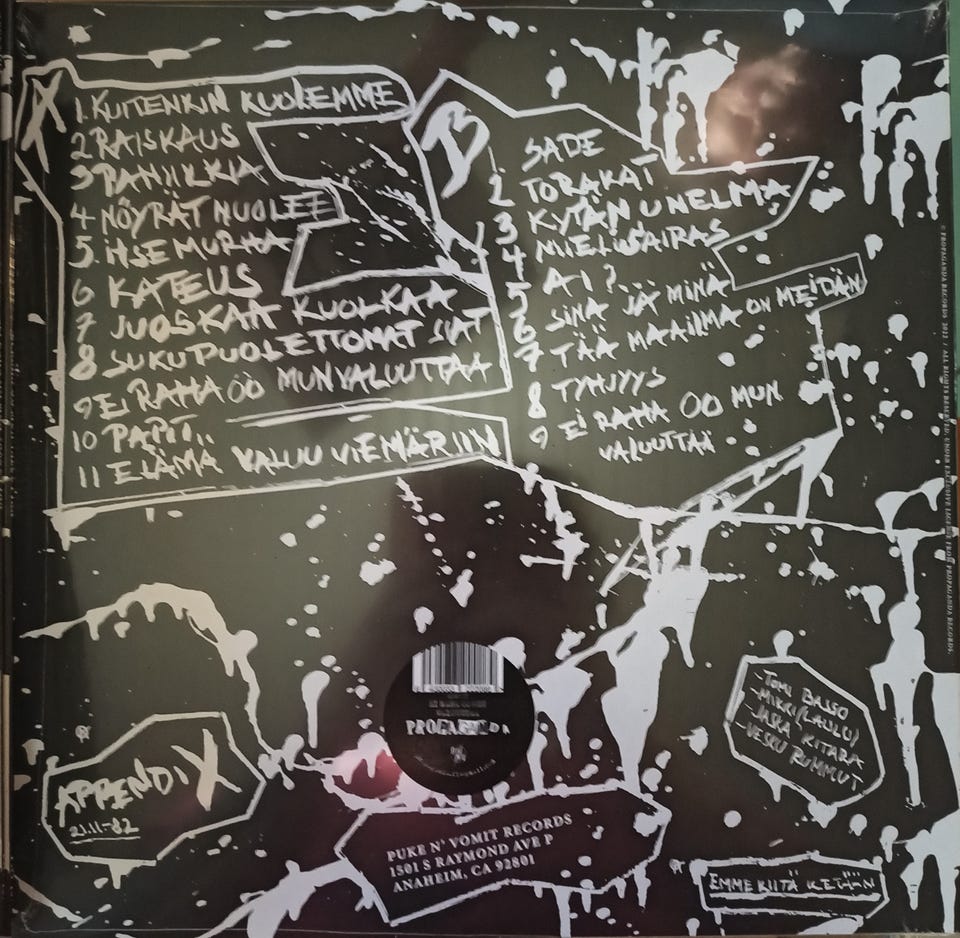 A
1. KUITENKIN KUOLEMME
2 RAISKAUS
3 PANIIKKIA
4 NÖYRÄT NUOLEE
5. ITSEMURHA
6 KATEUS
7 JUOSKAA KUOLKAA
8 SUKUPUOLETTOMAT SIAT
9 EI RAHA OO MUN VALUUTTAA
10 PAPIT..
11 ELÄMÄ VALUU VIEMÄRIIN
B
SADE
2 TORAKAT
3 KYTÄN UNELMA
4 MIELISAIRAS
5 AI?...
6 SINÄ JA MINÄ
7 TÄÄ MAAILMA ON MEIDÄN
8 TYHJYYS
9 EI RAHA OO MUN
VALUUTTAA
APPENDIX
21.11-82
PROPAGANDA
PUKE N' VOMIT RECORDS
1501 S RAYMOND AVE P
ANAHEIM, CA 92801
-TOMI BASSO
-MIKKI (LAULU)
-JASKA KITARA
-VESKU RUMMUT
EMME KIITÄ KETÄÄN
© PROPAGANDA RECORDS 2012 / ALL RIGHTS RESERVED. UNDER EXCLUSIVE LICENSE FROM PROPAGANDA RECORDS.